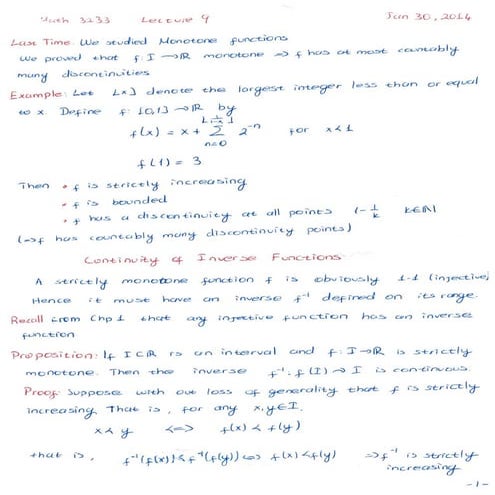 Math 3233 Lecture 9 Jan 30, 2014
Last Time: We studied Monotone functions
We proved that f: I → ℝ monotone ⇒ f has at most countably
many discontinuities
Example: Let ⌊x⌋ denote the largest integer less than or equal
to x. Define f: [0,1] → ℝ by
f(x) = x + ∑_{n=0}^{⌊1/(1-x)⌋} 2^{-n} for x<1
f(1) = 3
Then • f is strictly increasing
• f is bounded
• f has a discontinuity at all points 1 - 1/k k∈ℕ
(⇒ f has countably many discontinuity points)
Continuity of Inverse Functions
A strictly monotone function f is obviously 1-1 (injective)
Hence it must have an inverse f⁻¹ defined on its range.
Recall from Chp 1 that any injective function has an inverse
function
Proposition: If I⊂ℝ is an interval and f: I→ℝ is strictly
monotone. Then the inverse f⁻¹: f(I) → I is continuous.
Proof: Suppose with out loss of generality that f is strictly
increasing. That is, for any x,y∈I.
x < y ⇔ f(x) < f(y)
that is, f⁻¹(f(x)) < f⁻¹(f(y)) ⇔ f(x) < f(y) ⇒ f⁻¹ is strictly
increasing
-1-